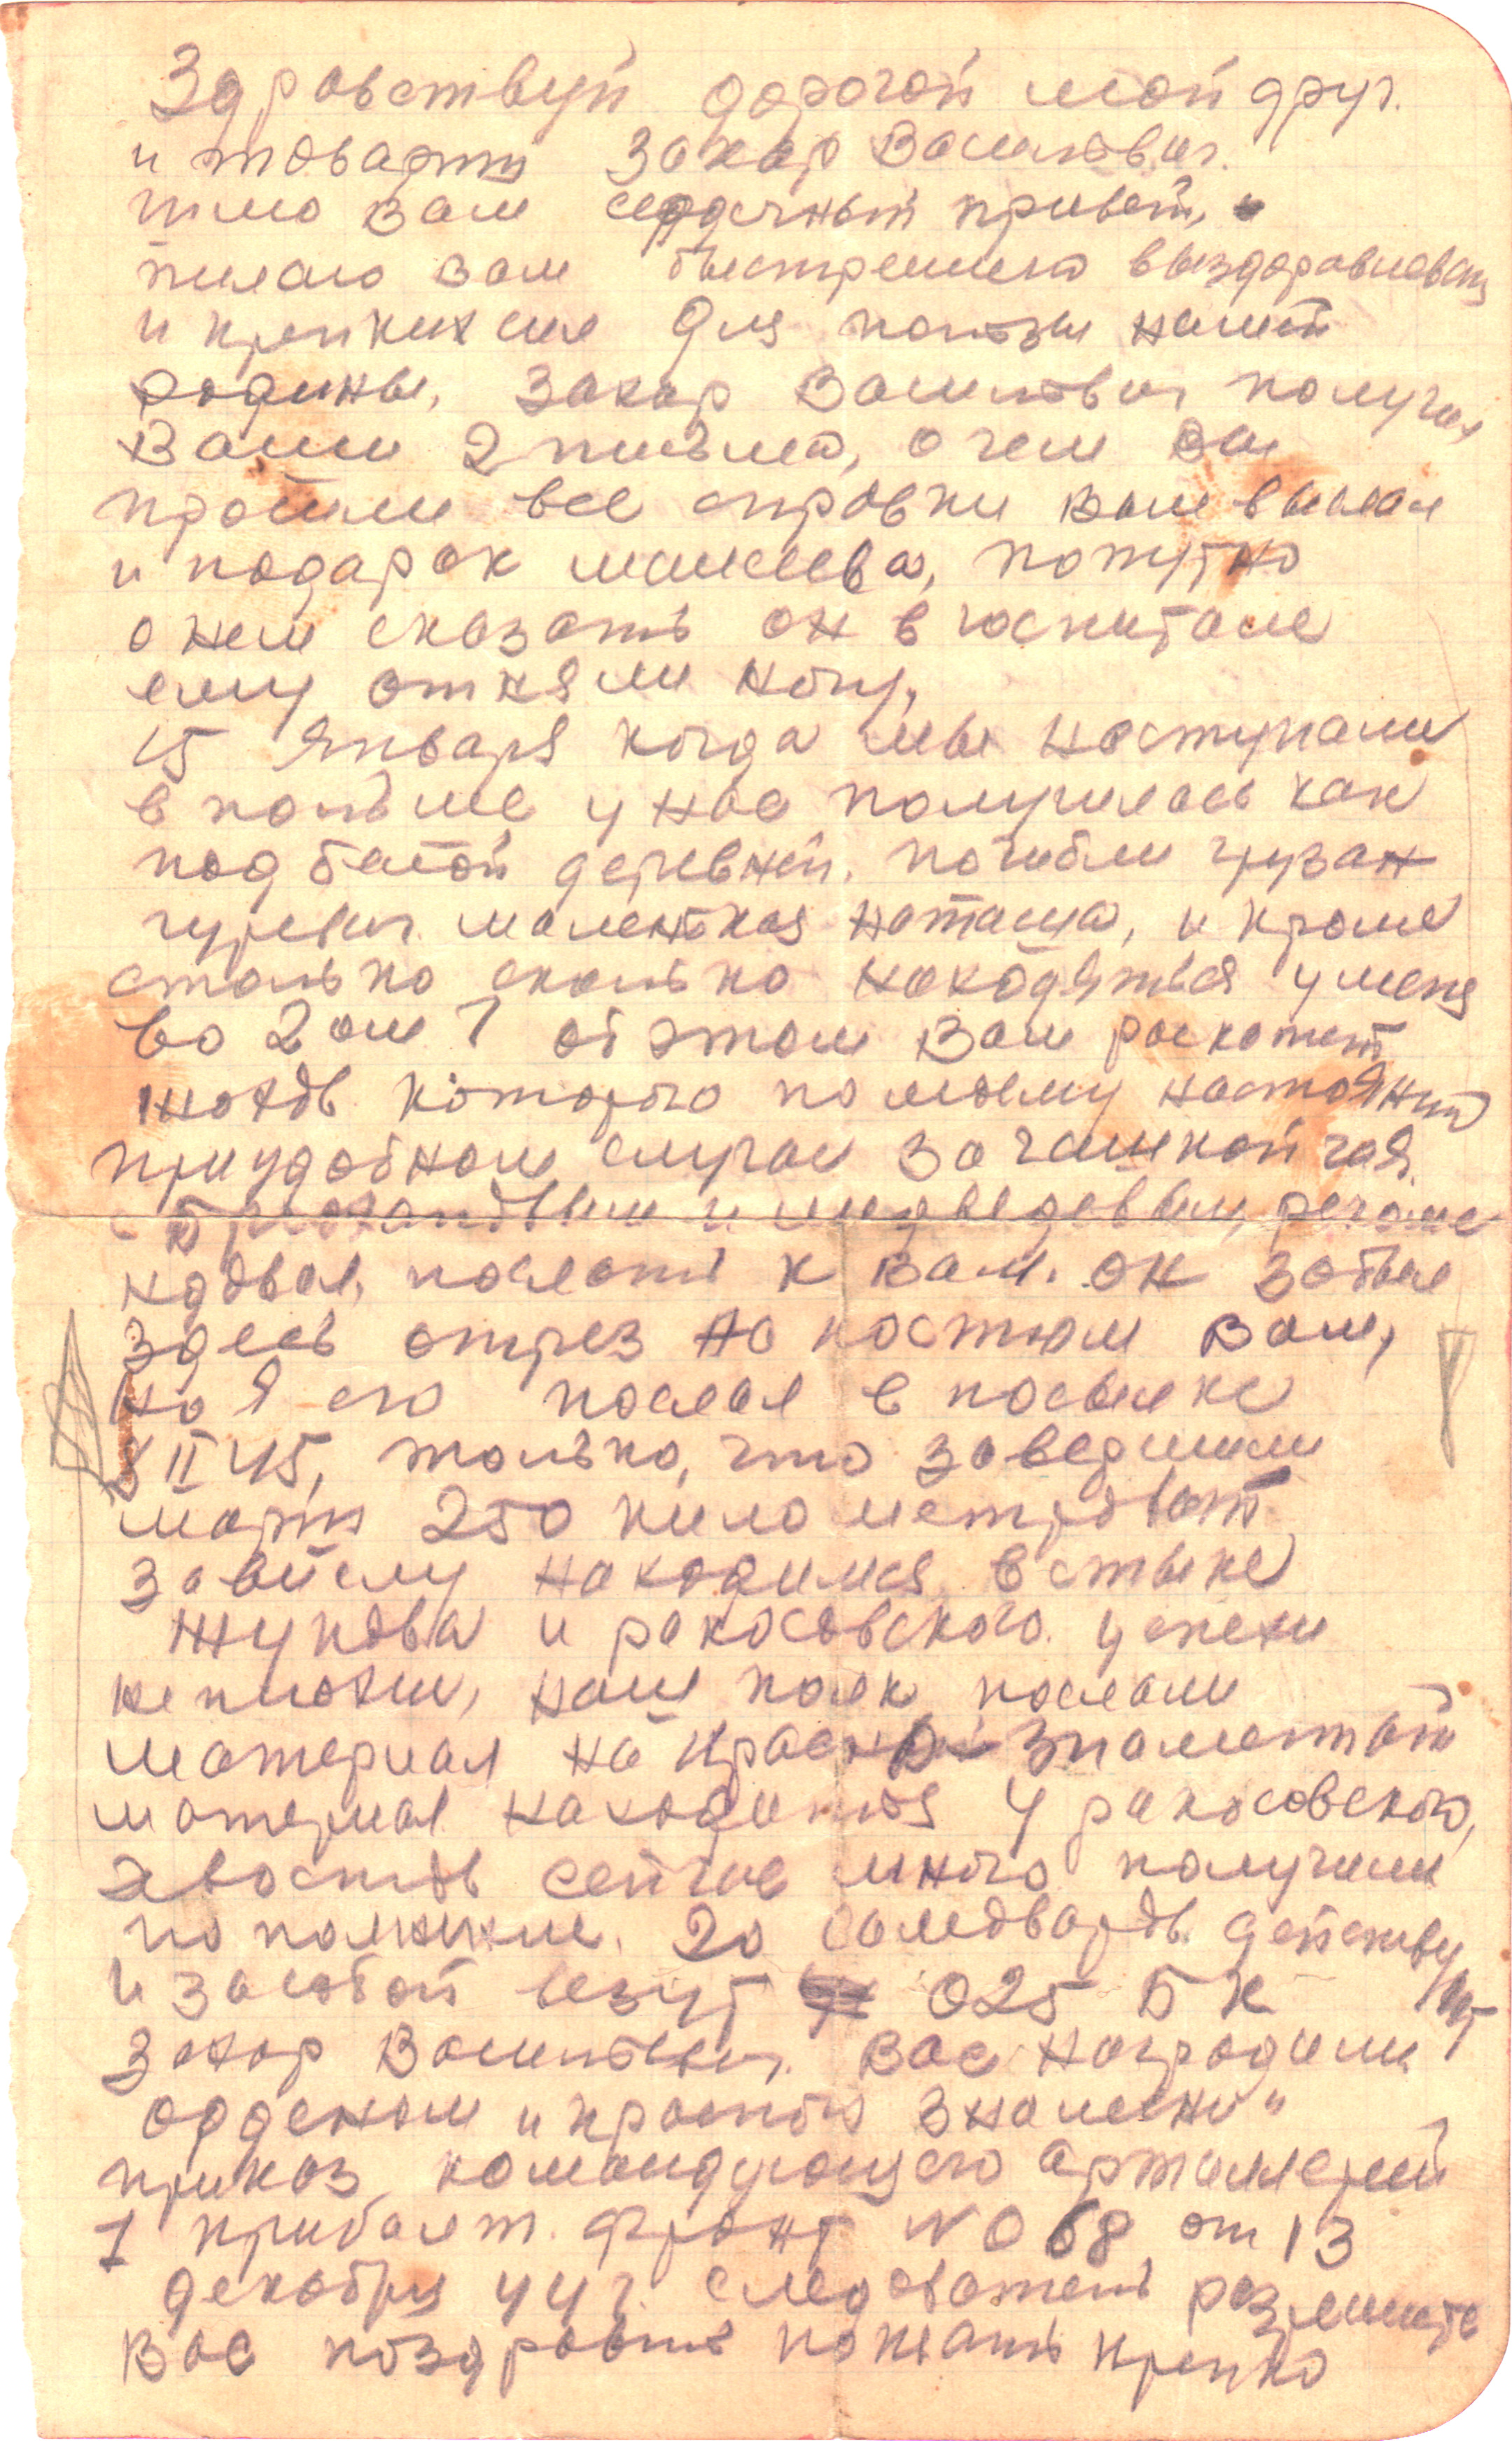 Здравствуй дорогой мой друг
и товарищ Захар Васильевич.
шлю Вам сердечный привет,
желаю Вам быстрейшего выздоровления
и крепких сил для пользы нашей
родины. Захар Васильевич получил
Ваши 2 письма, о чем Вы
просили все справки Вам выслал
и подарок попутно
о нем сказать он в госпитале
ему отняли ногу,
15 января когда мы наступали
в польше у нас получилось как
под белой деревней. погибли
гуревич маленькая наташа, и кроме
столько сколько находяться у меня
во 2 ом 7 об этом Вам раскажет
которого по моему настоянию
при удобном случае за чашкой чая
с и медведевым, рекоме
ндовал, послать к Вам. он забыл
здесь отрез на костюм Вам,
но я его послал в посылке
8 II 45, только, что завершили
марш 250 километровый
завислу находимся в стыке
жукова и рокосовского. успехи
неплохи, наш полк послали
материал на Краснознаменный
материал находится у рокосовского,
хвостов сейчас много получили
пополнение. 20 действу
ют
и за собой везут 025 БК
Захар Васильевич. Вас наградили
орденом "красного знамени"
приказ командующего артиллерией
1 прибалт. фронт N 068 от 13
декабря 44 г. следовательно разрешите
Вас поздравить пожать крепко